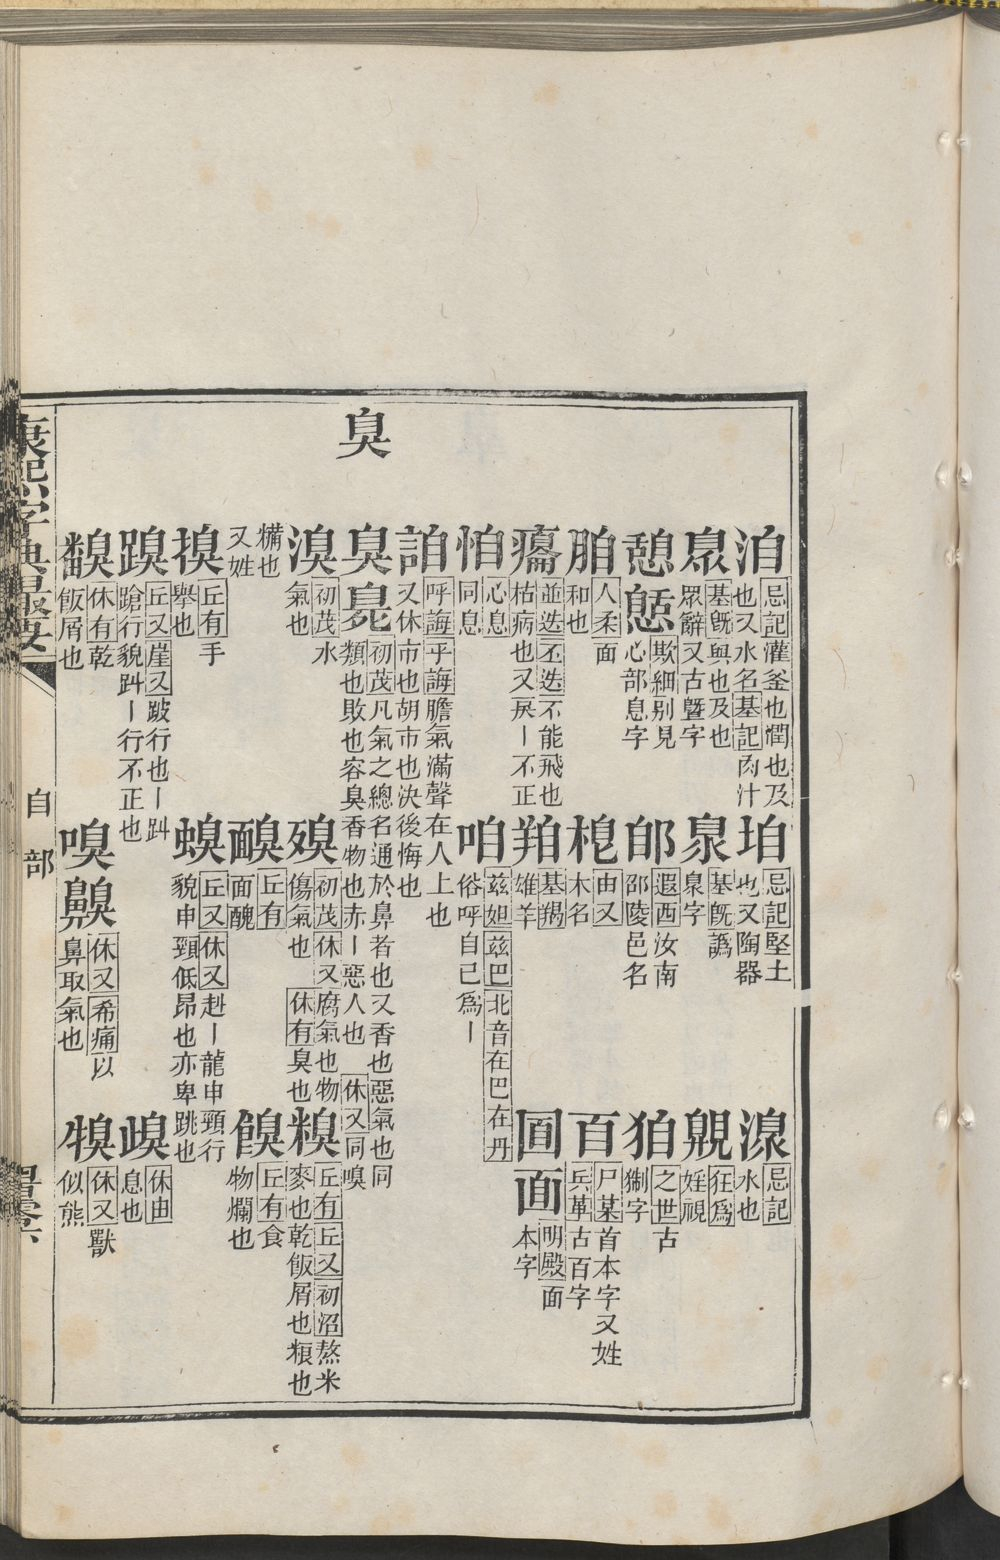 康熙字典撮要 自部
臭
洎 忌記灌釜也潤也及也又水名基記肉汁 垍 忌記堅土也又陶器 忌記水也
臮 基旣與也及也眾辭又古暨字 基旣譌臮字 狂爲姪視
憩 欺細別見心部息字 郋 遐西汝南邵陵邑名 之世古狾字
人柔面和也 由又木名 百 尸某首本字又姓兵革古百字
並迭丕迭不能飛也枯病也又戾丨不正 基羯雄羊 明殿面本字
心息同息 咱 茲妲茲巴北音在巴在丹俗呼自己爲丨
詯 呼誨乎誨膽氣滿聲在人上也又休市也胡市也決後悔也
臭臰 初茂凡氣之總名通於鼻者也又香也惡氣也同類也敗也容臭香物也赤丨惡人也休又同嗅
溴 初茂水氣也 殠 初茂休又腐氣也物傷氣也休有臭也 糗 丘有丘又初沼熬米麥也乾飯屑也粻也
糒也又姓 丘有面醜 丘有食物爛也
搝 丘有手舉也 螑 丘又休又赳丨龍申頸行貌申頸低昂也亦卑跳也
丘又崖又跛行也丨趴蹌行貌趴丨行不正也 休由息也
休有乾飯屑也 嗅齅 休又希痛以鼻取氣也 休又獸似熊